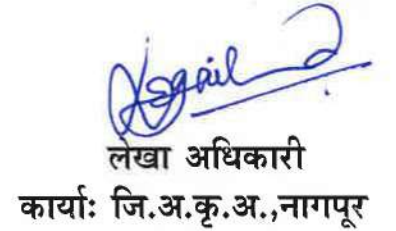 लेखा अधिकारी
कार्याः जि.अ.कृ.अ.,नागपूर